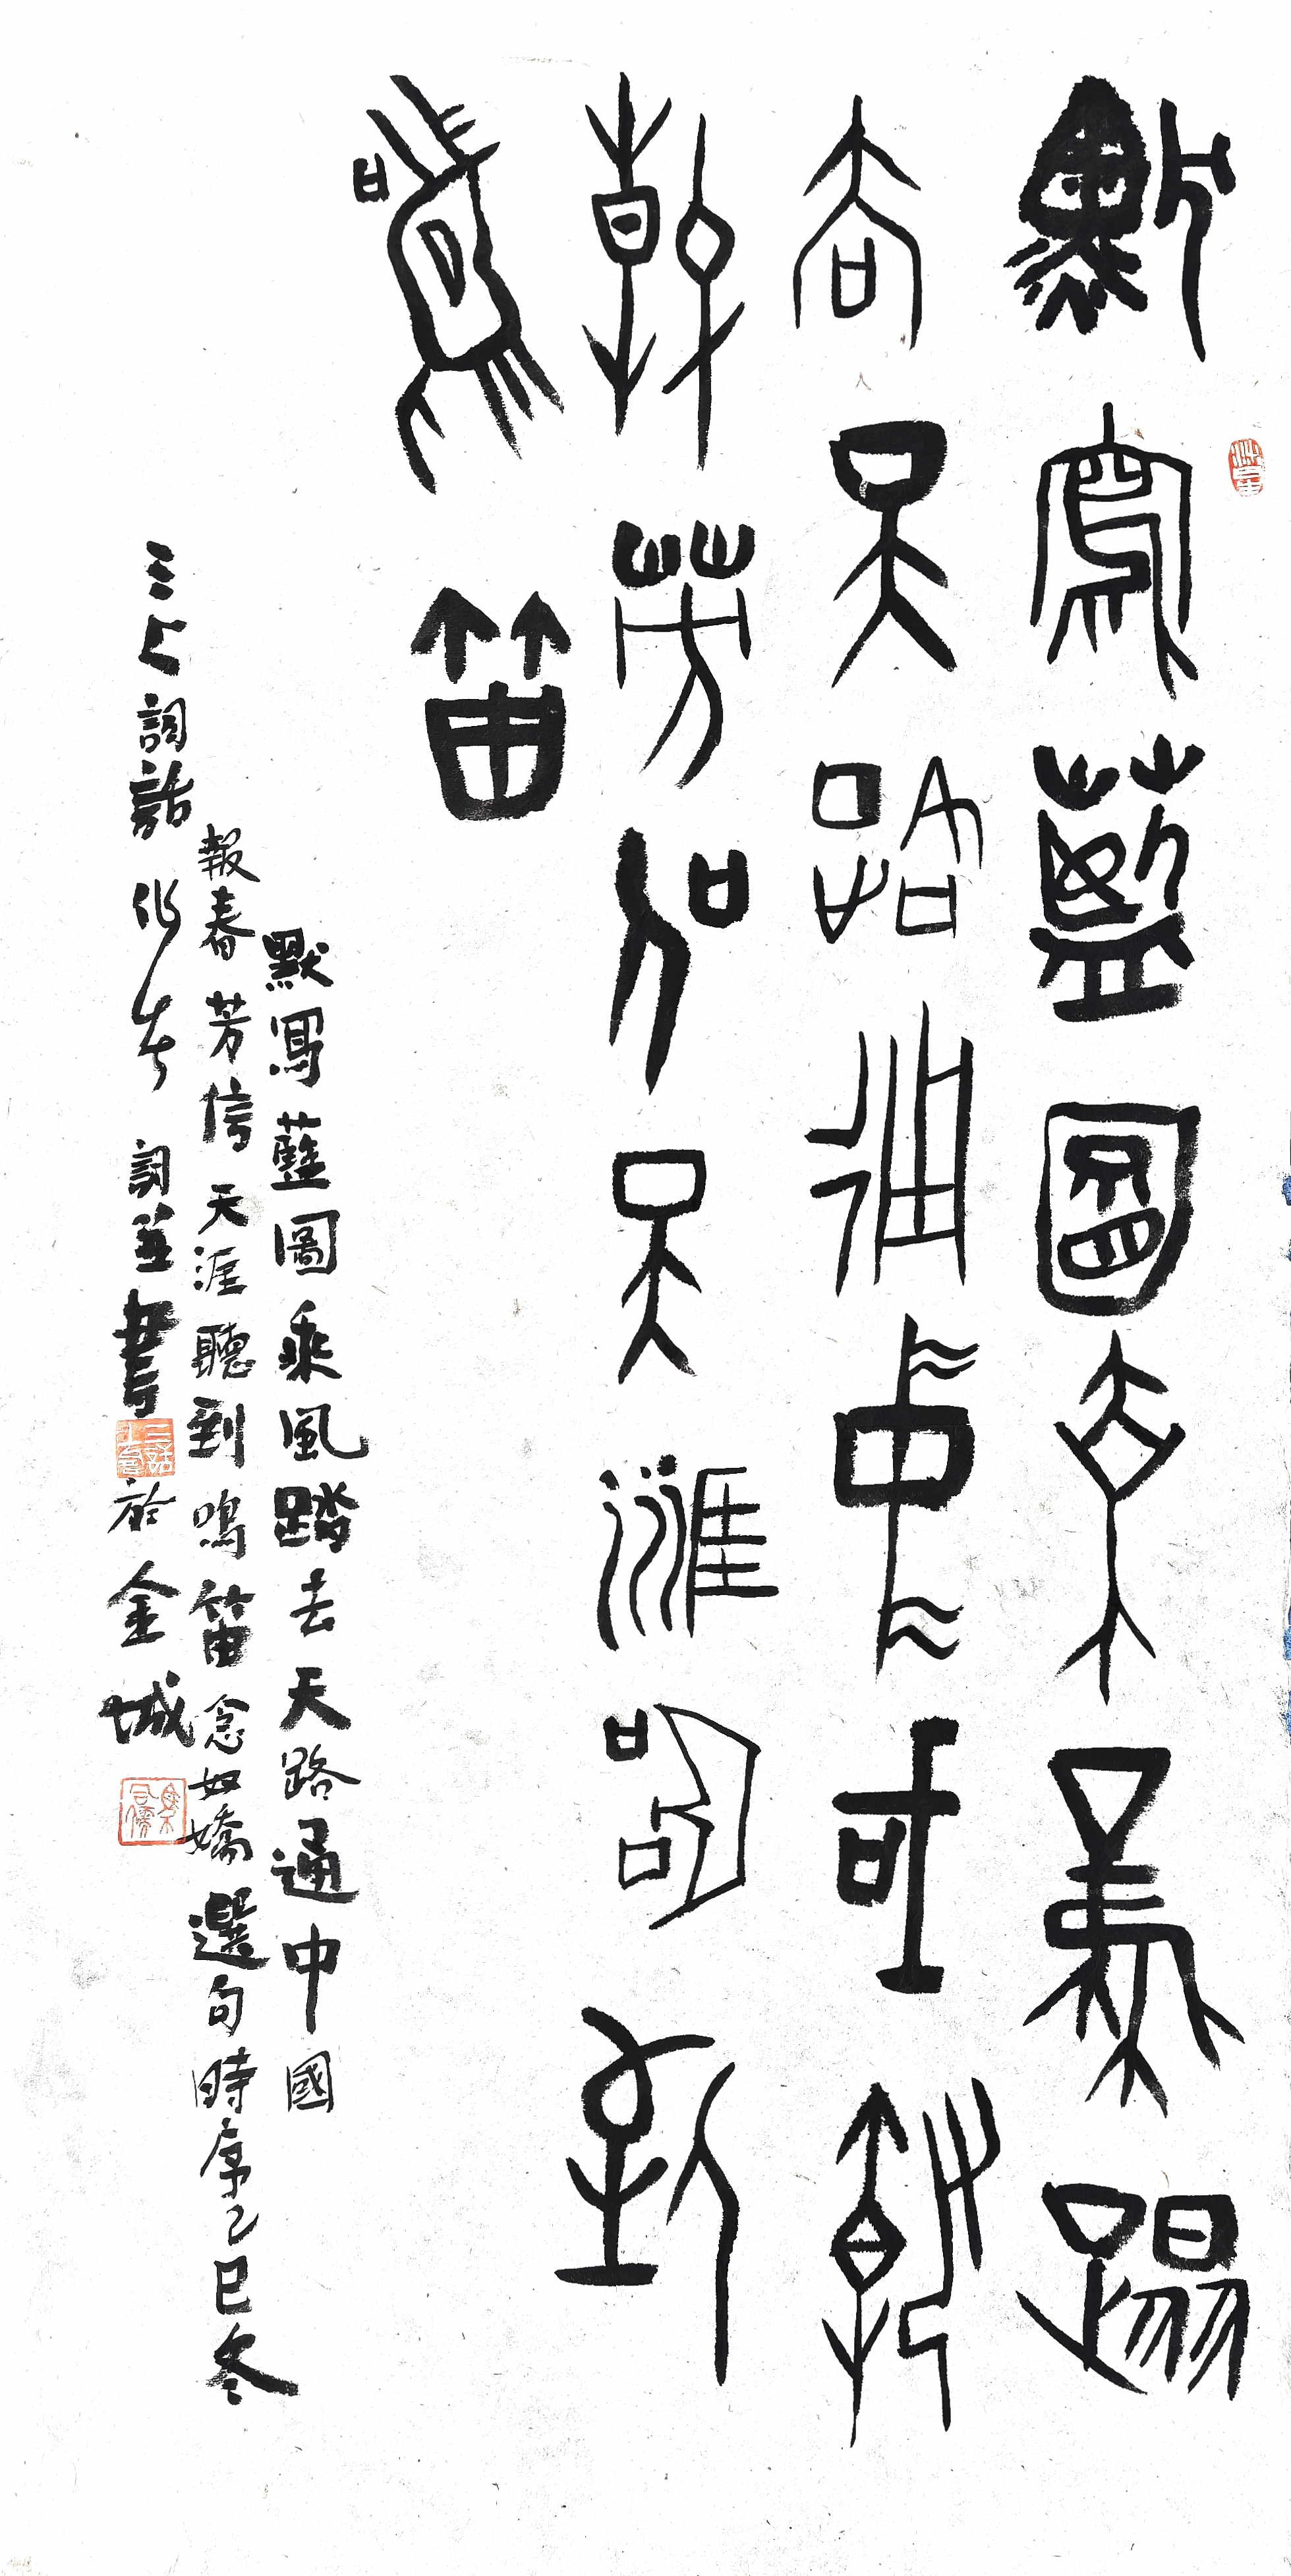 默寫藍圖乘風踏
去天路通中國報
春芳信天涯聽到
鳴笛
默寫藍圖乘風踏去天路通中國
報春芳信天涯聽到鳴笛念奴嬌選句時序乙巳冬
三上詞話作者詞並書於金城